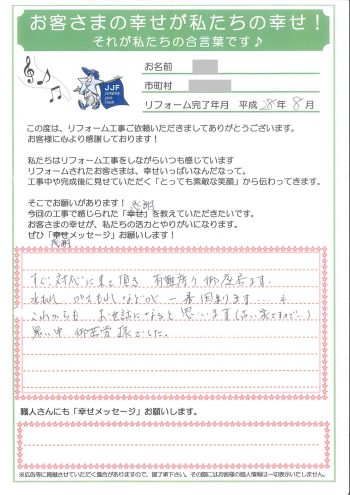 お客さまの幸せが私たちの幸せ！
それが私たちの合言葉です♪
お名前
市町村
JJF
リフォーム完了年月　平成 28 年 8 月
この度は、リフォーム工事ご依頼いただきましてありがとうございます。
お客様に心より感謝しております！
私たちはリフォーム工事をしながらいつも感じています
リフォームされたお客さまは、幸せいっぱいなんだなって。
工事中や完成後に見せていただく「とっても素敵な笑顔」から伝わってきます。
そこでお願いがあります！
感謝
今回の工事で感じられた「幸せ」を教えていただきたいです。
お客さまの幸せが、私たちの活力とやりがいになります。
ぜひ「幸せメッセージ」お願いします！
感謝
すぐ対応に来て頂き 有難度う御座居ます。
水もれ ガスもれ などが 一番困ります
これからも お世話になると思います（古い家ですので…）
暑い中 御苦労様でした。
職人さんにも「幸せメッセージ」お願いします。
※広告等に掲載させていただく場合がありますので、御了承下さい。その際にはお客様の個人情報は一切表かいたしません。